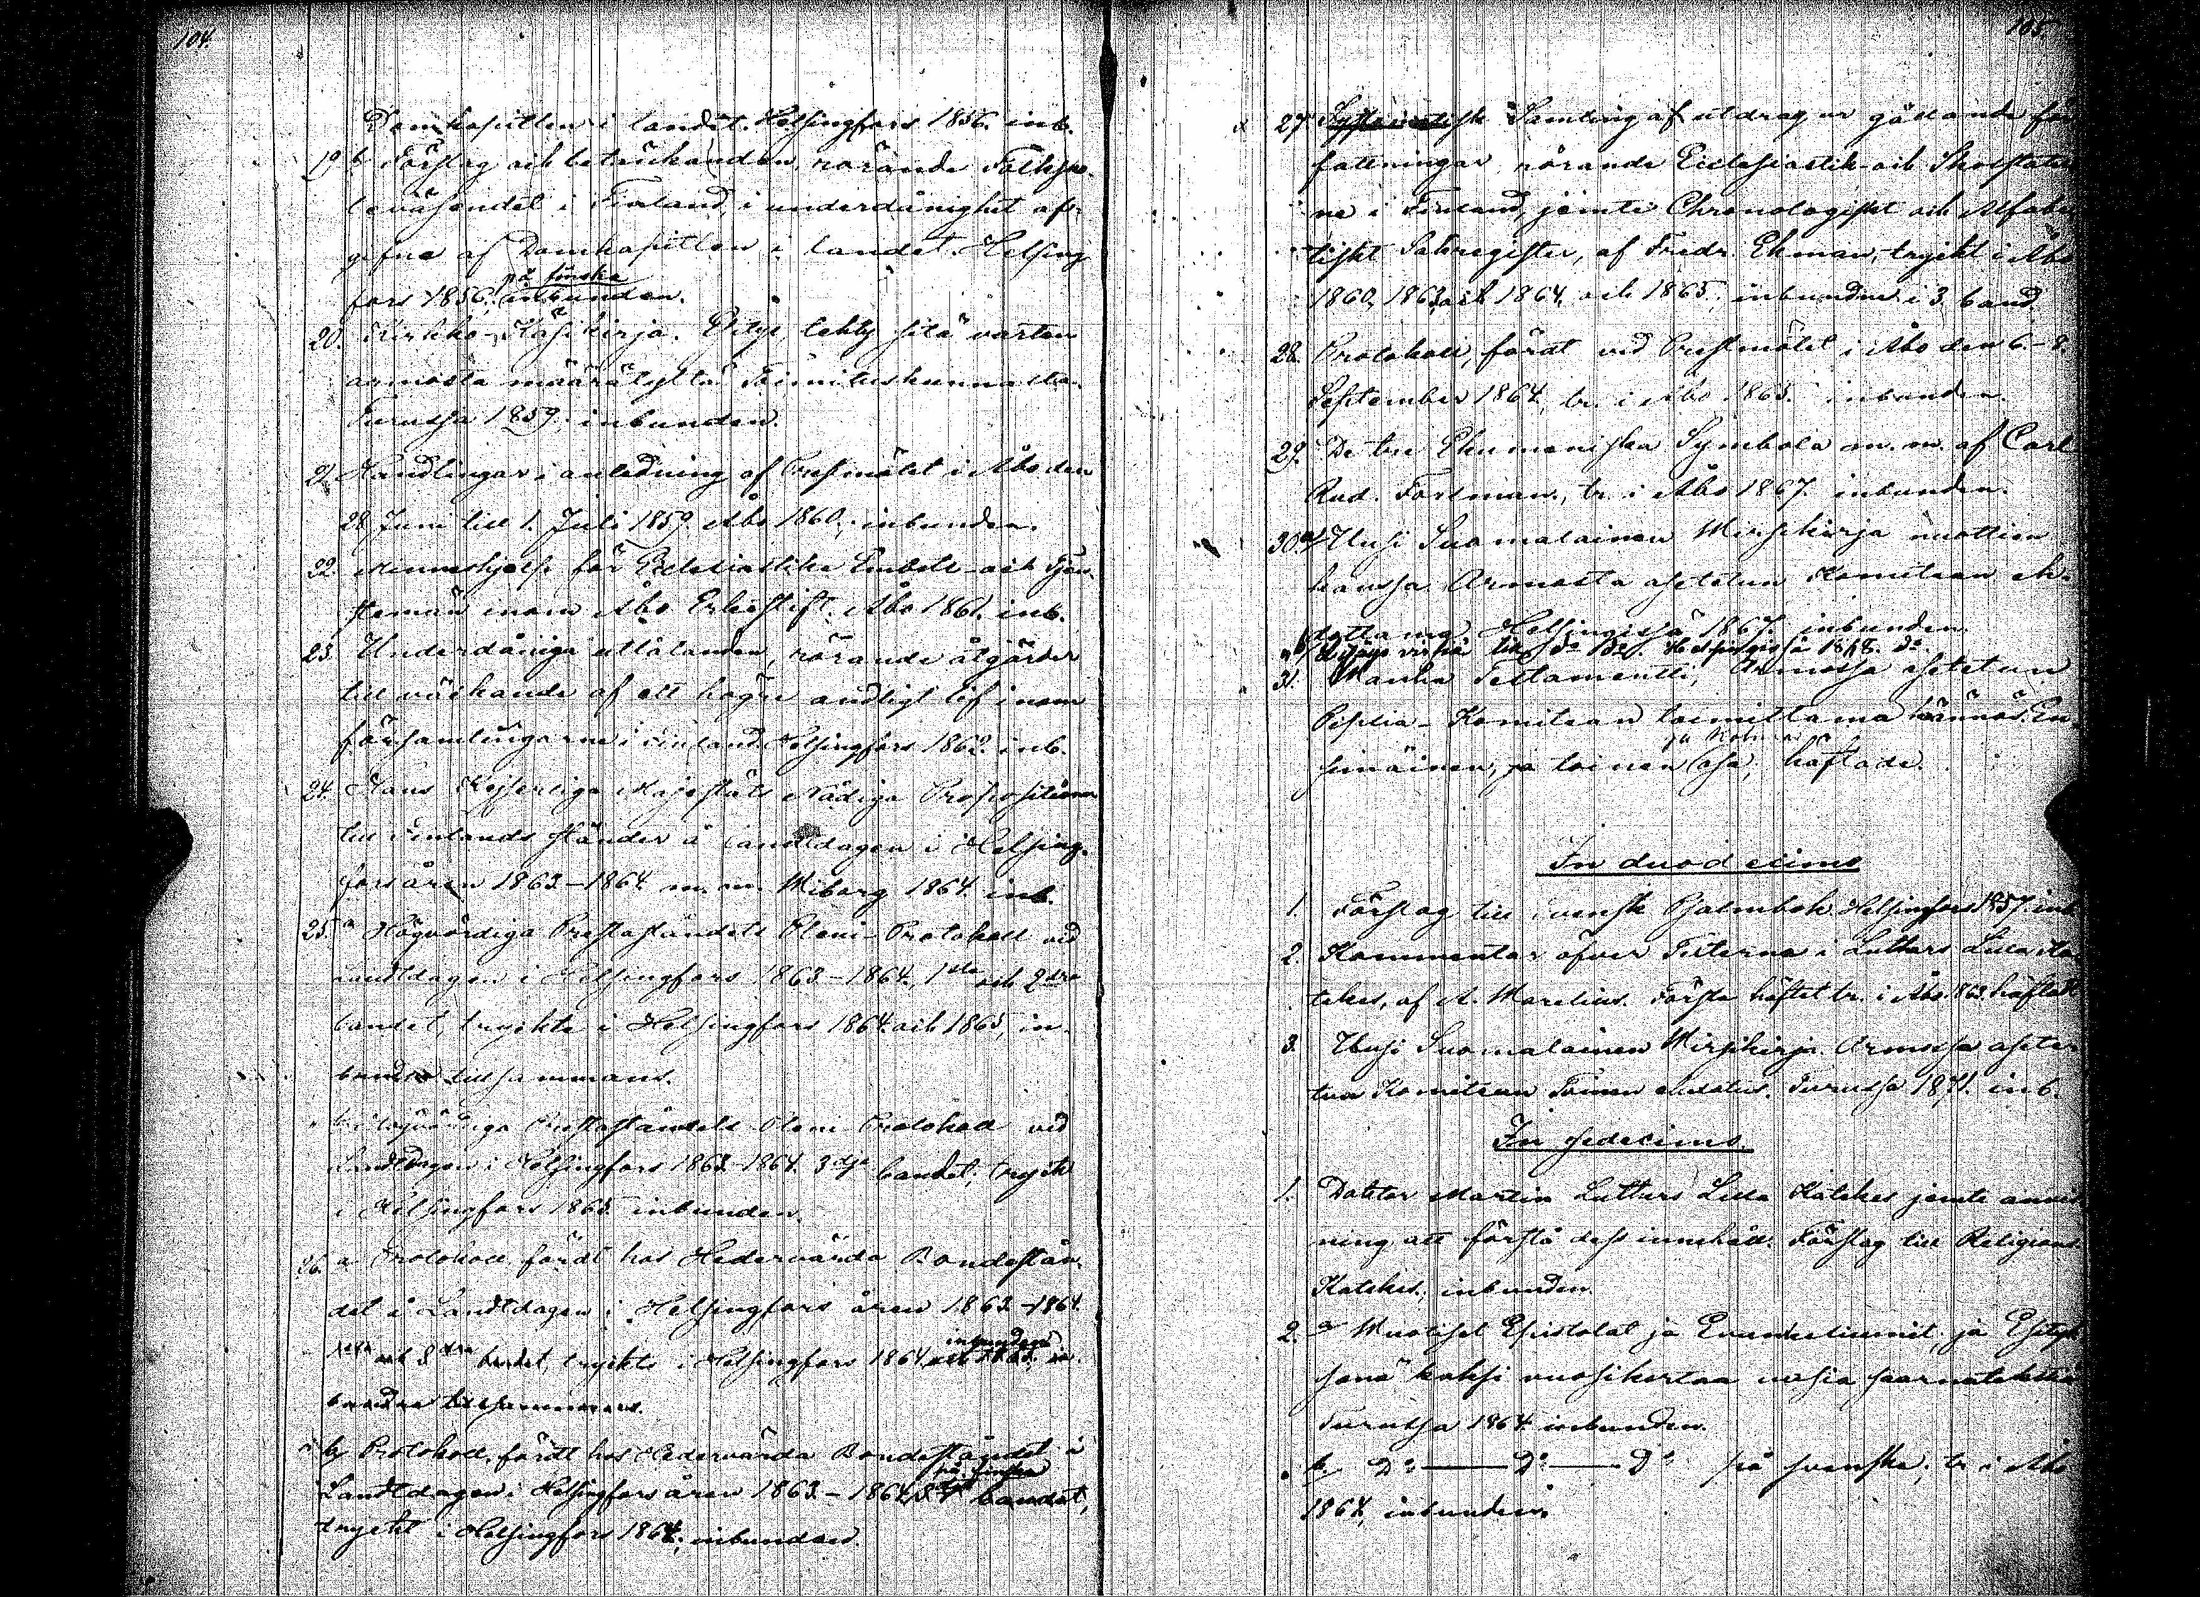 104.
Domkapitlen i landet. Helsingfors 1856. inb.
19 b Förslag och betänkanden, rörande Folksko-
leväsendet i Finland, i underdånighet af-
gifne af Domkapitlen i landet. Helsing-
på finska
fors 1856. inbunden.
20. Kirkko-Käsikirja. Ehitys, tehty sitä varten
armosta määrätyltä Toimituskunnalta.
Turussa 1859. inbunden.
21. Handlingar i anledning af Prestmötet i Åbo den
28 Juni till 1. Juli 1859. Åbo 1860. inbunden.
22. Minneshjelp för Ecclesiastike Embets- och Tjen-
stemän inom Åbo Erkestift. Åbo 1861. inb.
23. Underdåniga utlåtanden, rörande åtgärder
till väckande af ett högre andligt lif inom
församlingarne i Finland. Helsingfors 1863. inb.
24. Hans Kejserliga Majestäts Nådiga Propositioner
till Finlands ständer å landtdagen i Helsing-
fors åren 1863-1864 m. m. Wiborg 1864. inb.
25. a Högvördiga Presteståndets Pleni-Protokoll vid
Landtdagen i Helsingfors 1863-1864. 1sta och 2dra
bandet, tryckte i Helsingfors 1864 och 1865, in-
bundne tillsammans.
" b Högvördiga Presteståndets Pleni-Protokoll vid
Landtdagen i Helsingfors 1863-1864. 3dje bandet, tryckt
i Helsingfors 1865. inbunden.
26. a Protokoll, fördt hos Hedervärda Bondestån-
det å Landtdagen i Helsingfors åren 1863-1864.
inbunden
1sta och 2dra bandet, tryckte i Helsingfors 1864 och 1865. in-
bundna tillsammans.
" b, Protokoll, fördt hos Hedervärda Bondeståndet å
på finska
Landtdagen i Helsingfors åren 1863-1864, bandet,
tryckt i Helsingfors 1864, inbunden.
105.
27 Systematisk Samling af utdrag ur gällande för-
fattningar rörande Ecclesiastik- och Skolstater-
ne i Finland, jemte Chronologiskt och Alfabe-
tiskt Sakregister, af Fredr. Ekman, tryckt i Åbo
1860, 1863, och 1864. och 1865, inbunden i 3 band.
28. Protokoll, fördt vid Prestmötet i Åbo den 6-8.
September 1864, tr. i Åbo 1865. inbunden.
29. De tre Ekumeniska Symbola m. m. af Carl
Rud. Forsman, tr. i Åbo 1867. inbunden.
30. a/ Uusi Suomalainen Wirsikirja nuottien
kanssa Armosta asetetun Komitean eh-
dottama. Helsingissä 1867. inbunden.
" b/ Lisäys virsiä till do do. Helsingissä 1868. do
31. Wanha Testamentti, Armossa asetetun
Piplia-Komitean toimittama käännös. En-
ja Kolmas
simäinen, ja toinen osa, häftade.
In duodecimo
1. Förslag till Svensk Psalmbok. Helsingfors 1857. inb.
2. Kommentar öfver Texterna i Luthers Lilla Ka-
tekes, af A. Warelius. Första häftet tr. i Åbo 1863. häftadt
3. Uusi Suomalainen Wirsikirja. Armossa asete-
tun Komitean Toinen ehdotus. Turussa 1871. inb.
In sedecimo.
1. Doktor Martin Luthers Lilla Katekes jemte anvis-
ning att förstå dess innehåll. Förslag till Religions-
Katekes, inbunden.
2. a Wuotiset Epistolat ja Evankeliumit, ja Esityk-
senä kaksi vuosikertaa uusia saarnatekstiä
Turussa 1864 inbunden.
" b. Do Do Do på svenska, tr. i Åbo
1864, inbunden.